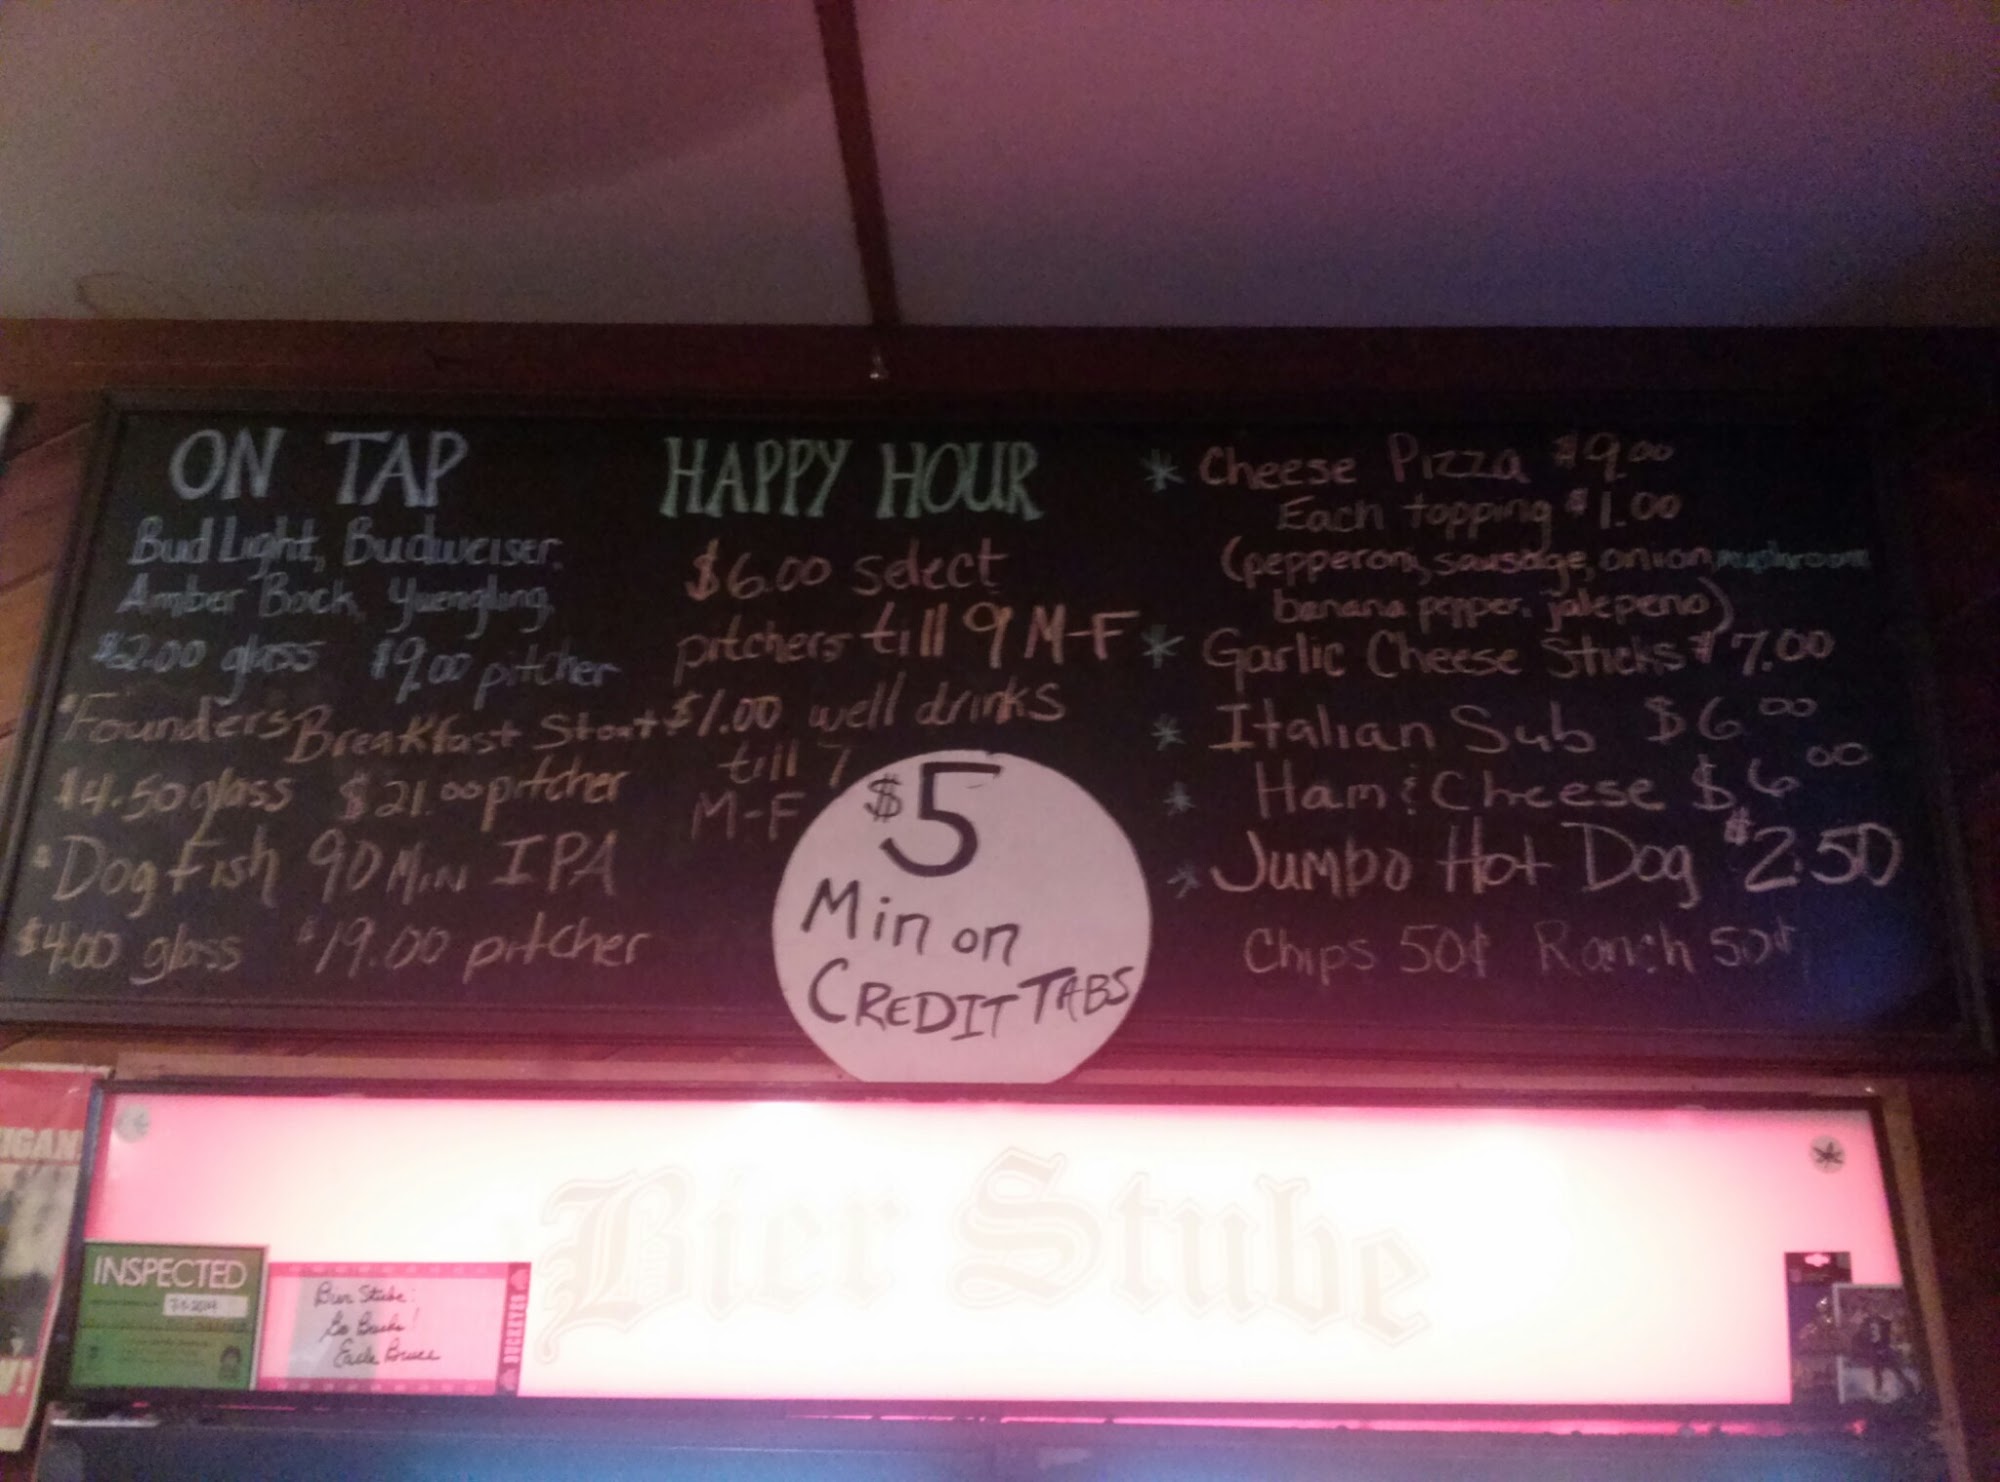 ON TAP
Bud Light, Budweiser.
Amber Bock, Yuengling,
$2.00 glass $9.00 pitcher
*Founders Breakfast Stout
$4.50 glass $21.00 pitcher
*Dog Fish 90 Min IPA
$4.00 glass $19.00 pitcher
HAPPY HOUR
$6.00 select
pitchers till 9 M-F
$1.00 well drinks
till 7
M-F
$5
Min on
CREDIT TABS
* Cheese Pizza $9.00
Each topping $1.00
(pepperoni, sausage, onion, mushroom
banana pepper, jalepeno)
* Garlic Cheese Sticks $7.00
* Italian Sub $6.00
* Ham & Cheese $6.00
* Jumbo Hot Dog $2.50
Chips 50¢ Ranch 50¢
Bier Stube
INSPECTED
Bier Stube:
Go Bucks!
Earle Bruce
BUCKEYES
IGAN
!